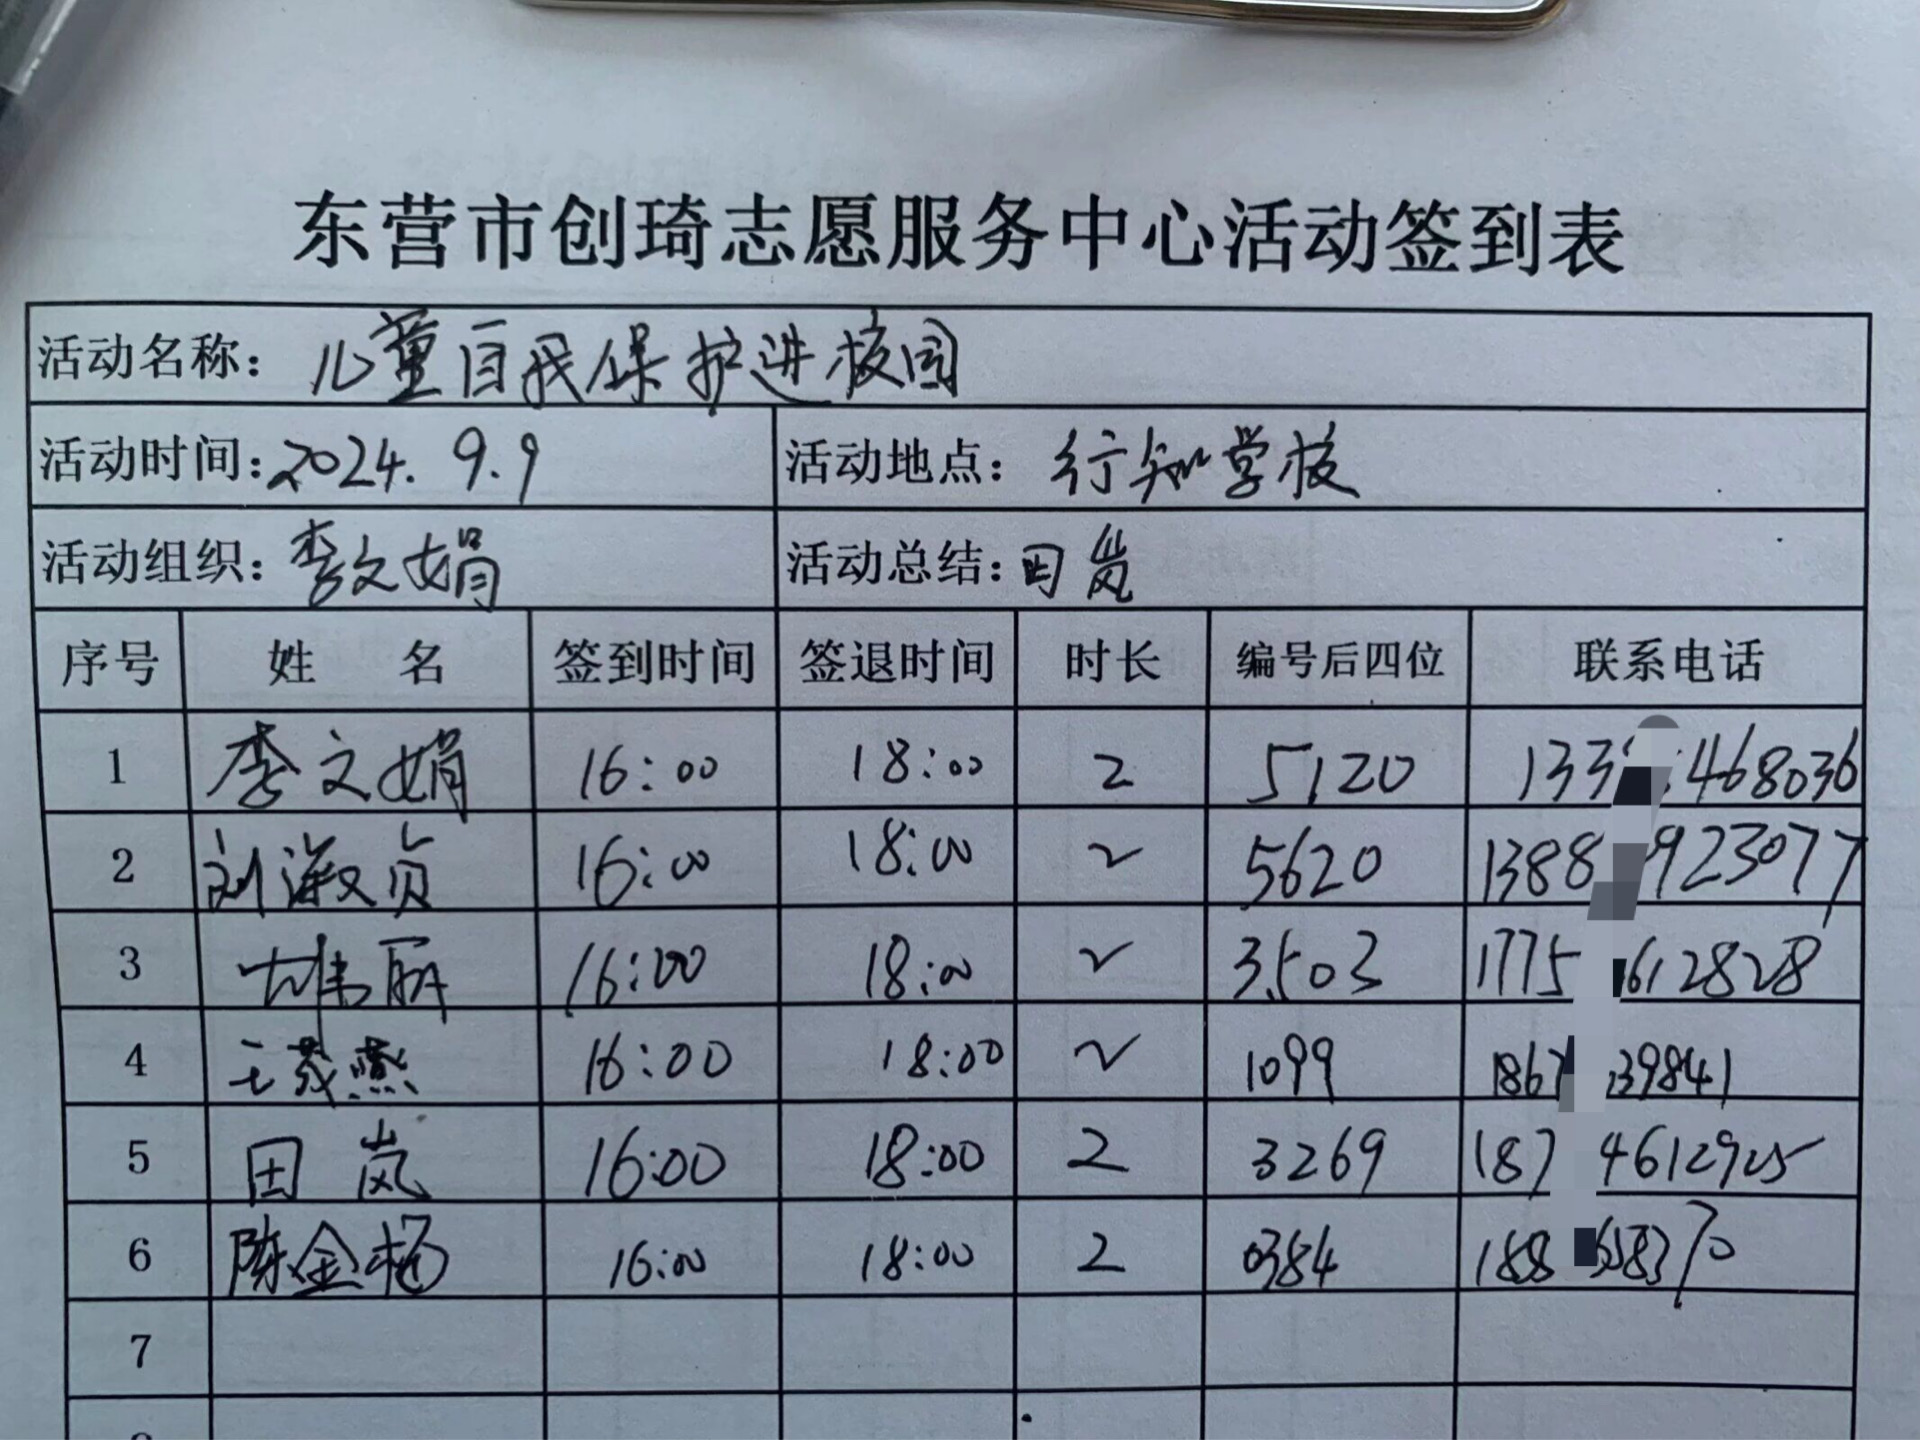 东营市创琦志愿服务中心活动签到表
活动名称：儿童自我保护进校园
活动时间：2024.9.9 活动地点：行知学校
活动组织：李文娟 活动总结：田岚
序号 姓 名 签到时间 签退时间 时长 编号后四位 联系电话
1 李文娟 16:00 18:00 2 5120 133 468036
2 刘淑贞 16:00 18:00 2 5620 1388 923077
3 丽 16:00 18:00 2 3503 1775 612828
4 王燕 16:00 18:00 2 1099 1867 39841
5 田岚 16:00 18:00 2 3269 187 4612925
6 陈金杨 16:00 18:00 2 0384 188 58370
7